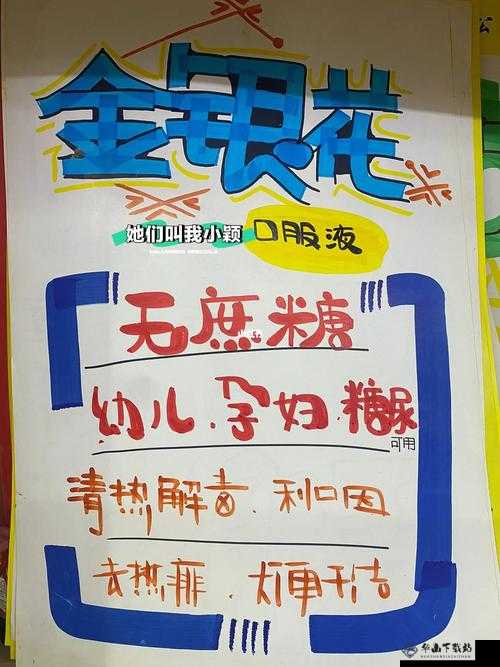 金银花
她们叫我小颖
口服液
无庶糖
幼儿.孕妇.糖尿
可用
清热解毒.利口因
去热痱.大更干洁
华山下载站